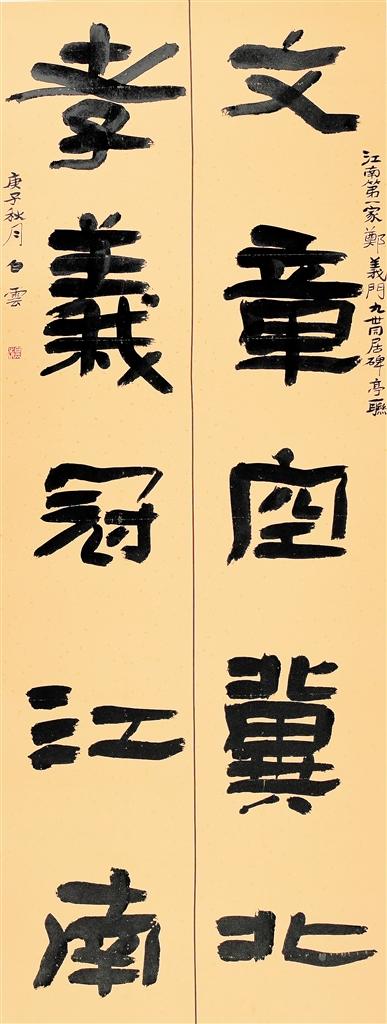 江南第一家鄭義門九世同居碑亭聯
文章空冀北
孝義冠江南
庚子秋月 白雲